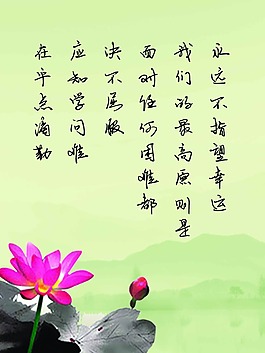 永远不指望幸运
我们的最高原则是
面对任何困难都
决不屈服
应知学问难
在乎点滴勤